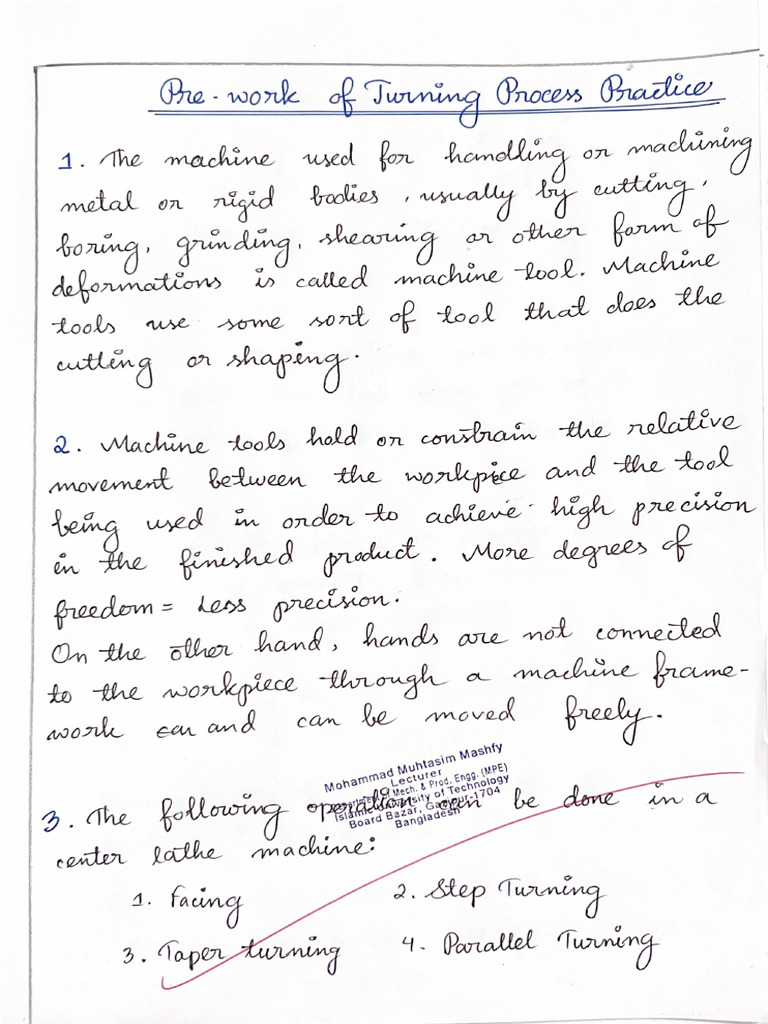 Pre-work of Turning Process Practice
1. The machine used for handling or machining
metal or rigid bodies, usually by cutting,
boring, grinding, shearing or other form of
deformations is called machine tool. Machine
tools use some sort of tool that does the
cutting or shaping.
2. Machine tools hold or constrain the relative
movement between the workpiece and the tool
being used in order to achieve high precision
in the finished product. More degrees of
freedom = Less precision.
On the other hand, hands are not connected
to the workpiece through a machine frame-
work and can be moved freely.
Mohammad Muhtasim Mashfy
Lecturer
Mech. & Prod. Engg. (MPE)
Islamic University of Technology
Board Bazar, Gazipur-1704
Bangladesh
3. The following operation can be done in a
center lathe machine:
1. Facing
2. Step Turning
3. Taper turning
4. Parallel Turning